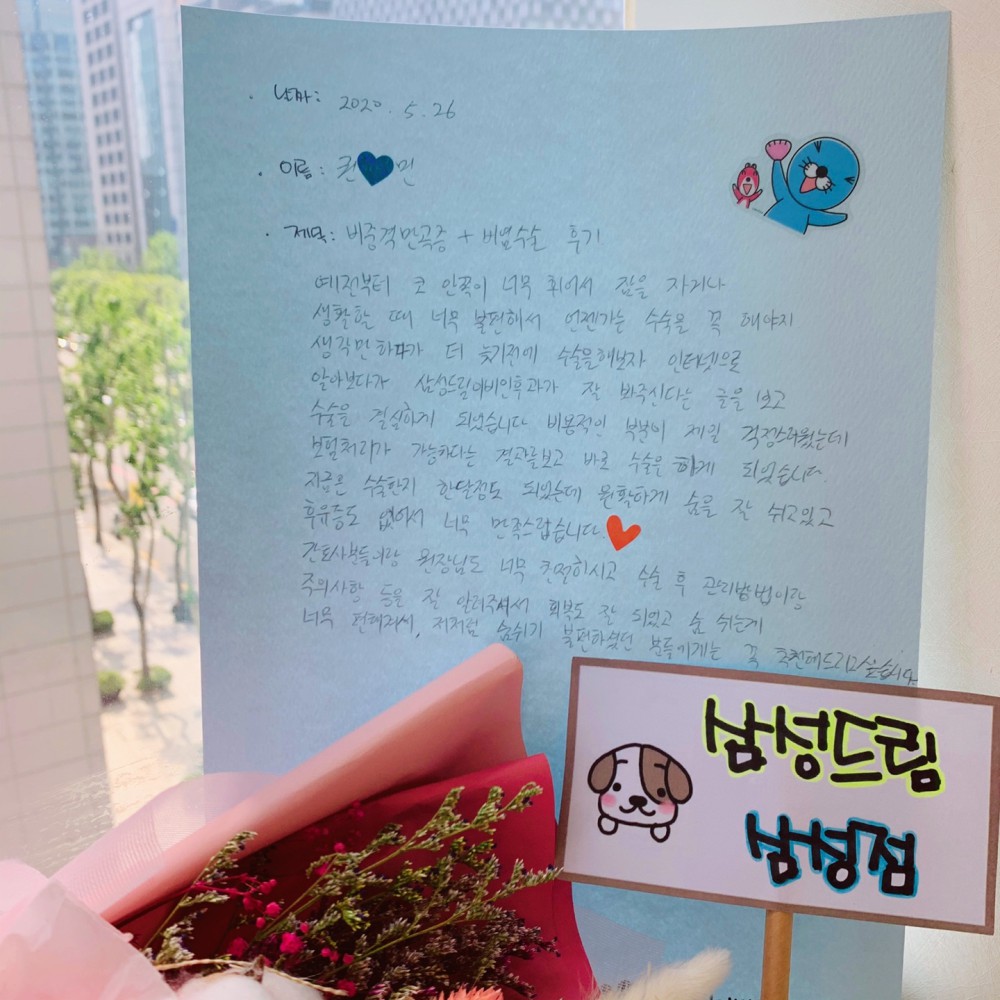 · 날짜 : 2020. 5. 26
· 이름 : 권 민
· 제목 : 비중격만곡증 + 비염수술 후기
예전부터 코 안쪽이 너무 휘어서 잠을 자거나
생활할 때 너무 불편해서 언젠가는 수술을 꼭 해야지
생각만 하다가 더 늦기전에 수술을해보자 인터넷으로
알아보다가 삼성드림이비인후과가 잘 봐주신다는 글을 보고
수술을 결심하게 되었습니다 비용적인 부분이 제일 걱정스러웠는데
보험처리가 가능하다는 결과를보고 바로 수술은 하게 되었습니다
지금은 수술한지 한달정도 되었는데 원활하게 숨을 잘 쉬고있고
후유증도 없어서 너무 만족스럽습니다.
간호사분들이랑 원장님도 너무 친절하시고 수술 후 관리방법이랑
주의사항 등을 잘 알려주셔서 회복도 잘 되었고 숨 쉬는게
너무 편해져서, 저처럼 숨쉬기 불편하셨던 분들에게는 꼭 추천해드리고싶습니다.
삼성드림
삼성점